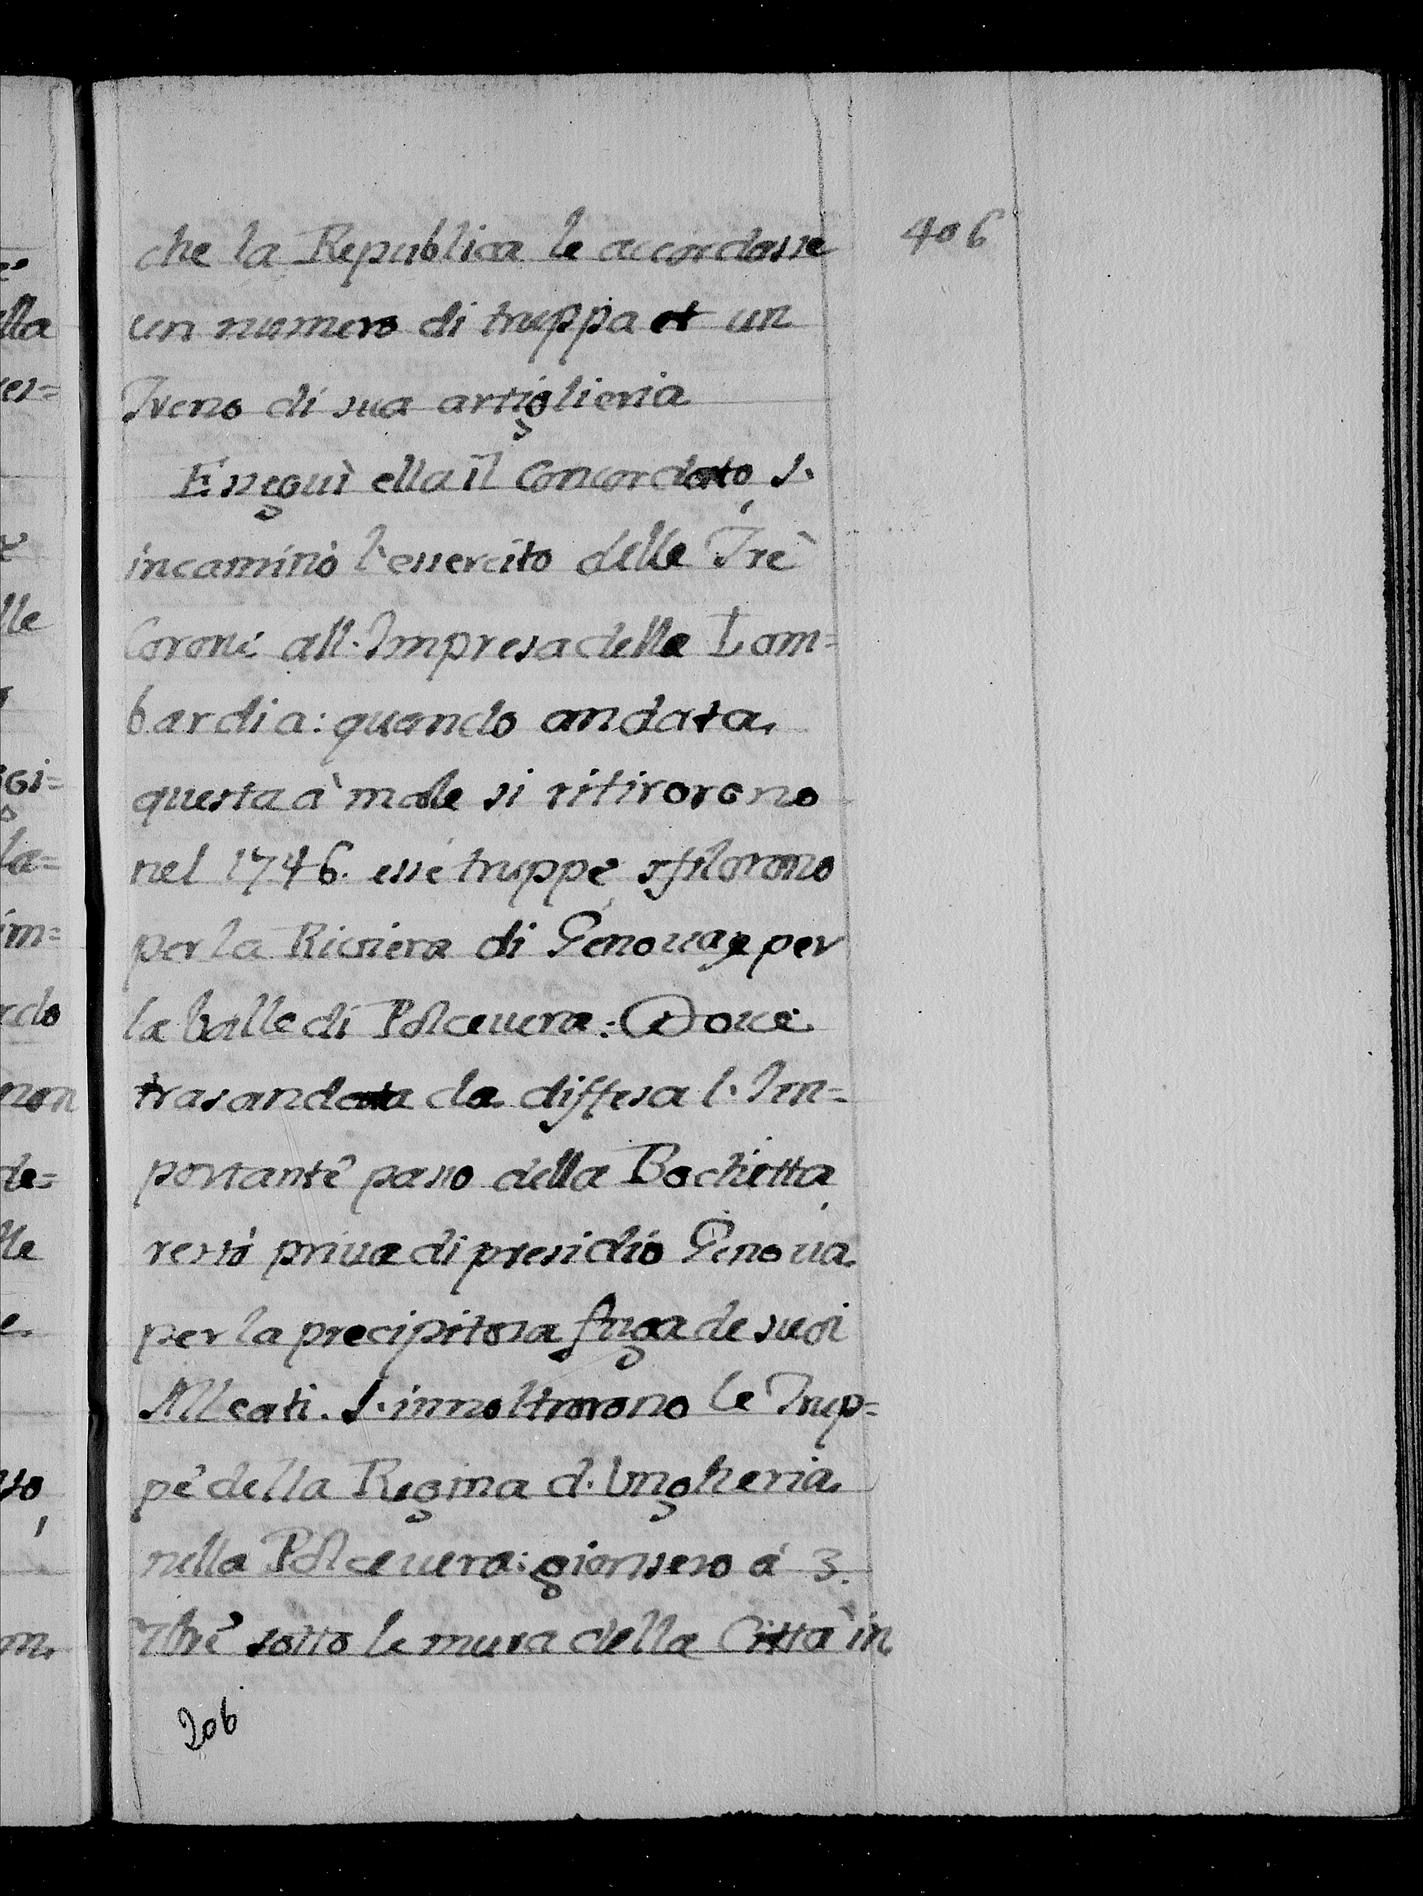 406
che la Republica le accordasse
un numero di truppa et un
Treno di sua artiglieria
Esseguì ella il Concordato, s'
incaminò l'essercito delle Trè
Corone all'Impresa della Lom=
bardia: quando andata
questa à male si ritirorono
nel 1746. esse truppe, sfilorono
per la Riviera di Genova, e per
la Valle di Polcevera: Dove
trasandata la diffesa l'Im=
portante passo della Bochetta
restò priva di presidio Genova
per la precipitosa fuga de suoi
Alleati. S'innoltrorono le Trup=
pe della Regina d'Ungheria
nella Polcevera: gionsero à 3.
7bre sotto le mura della Città in
206